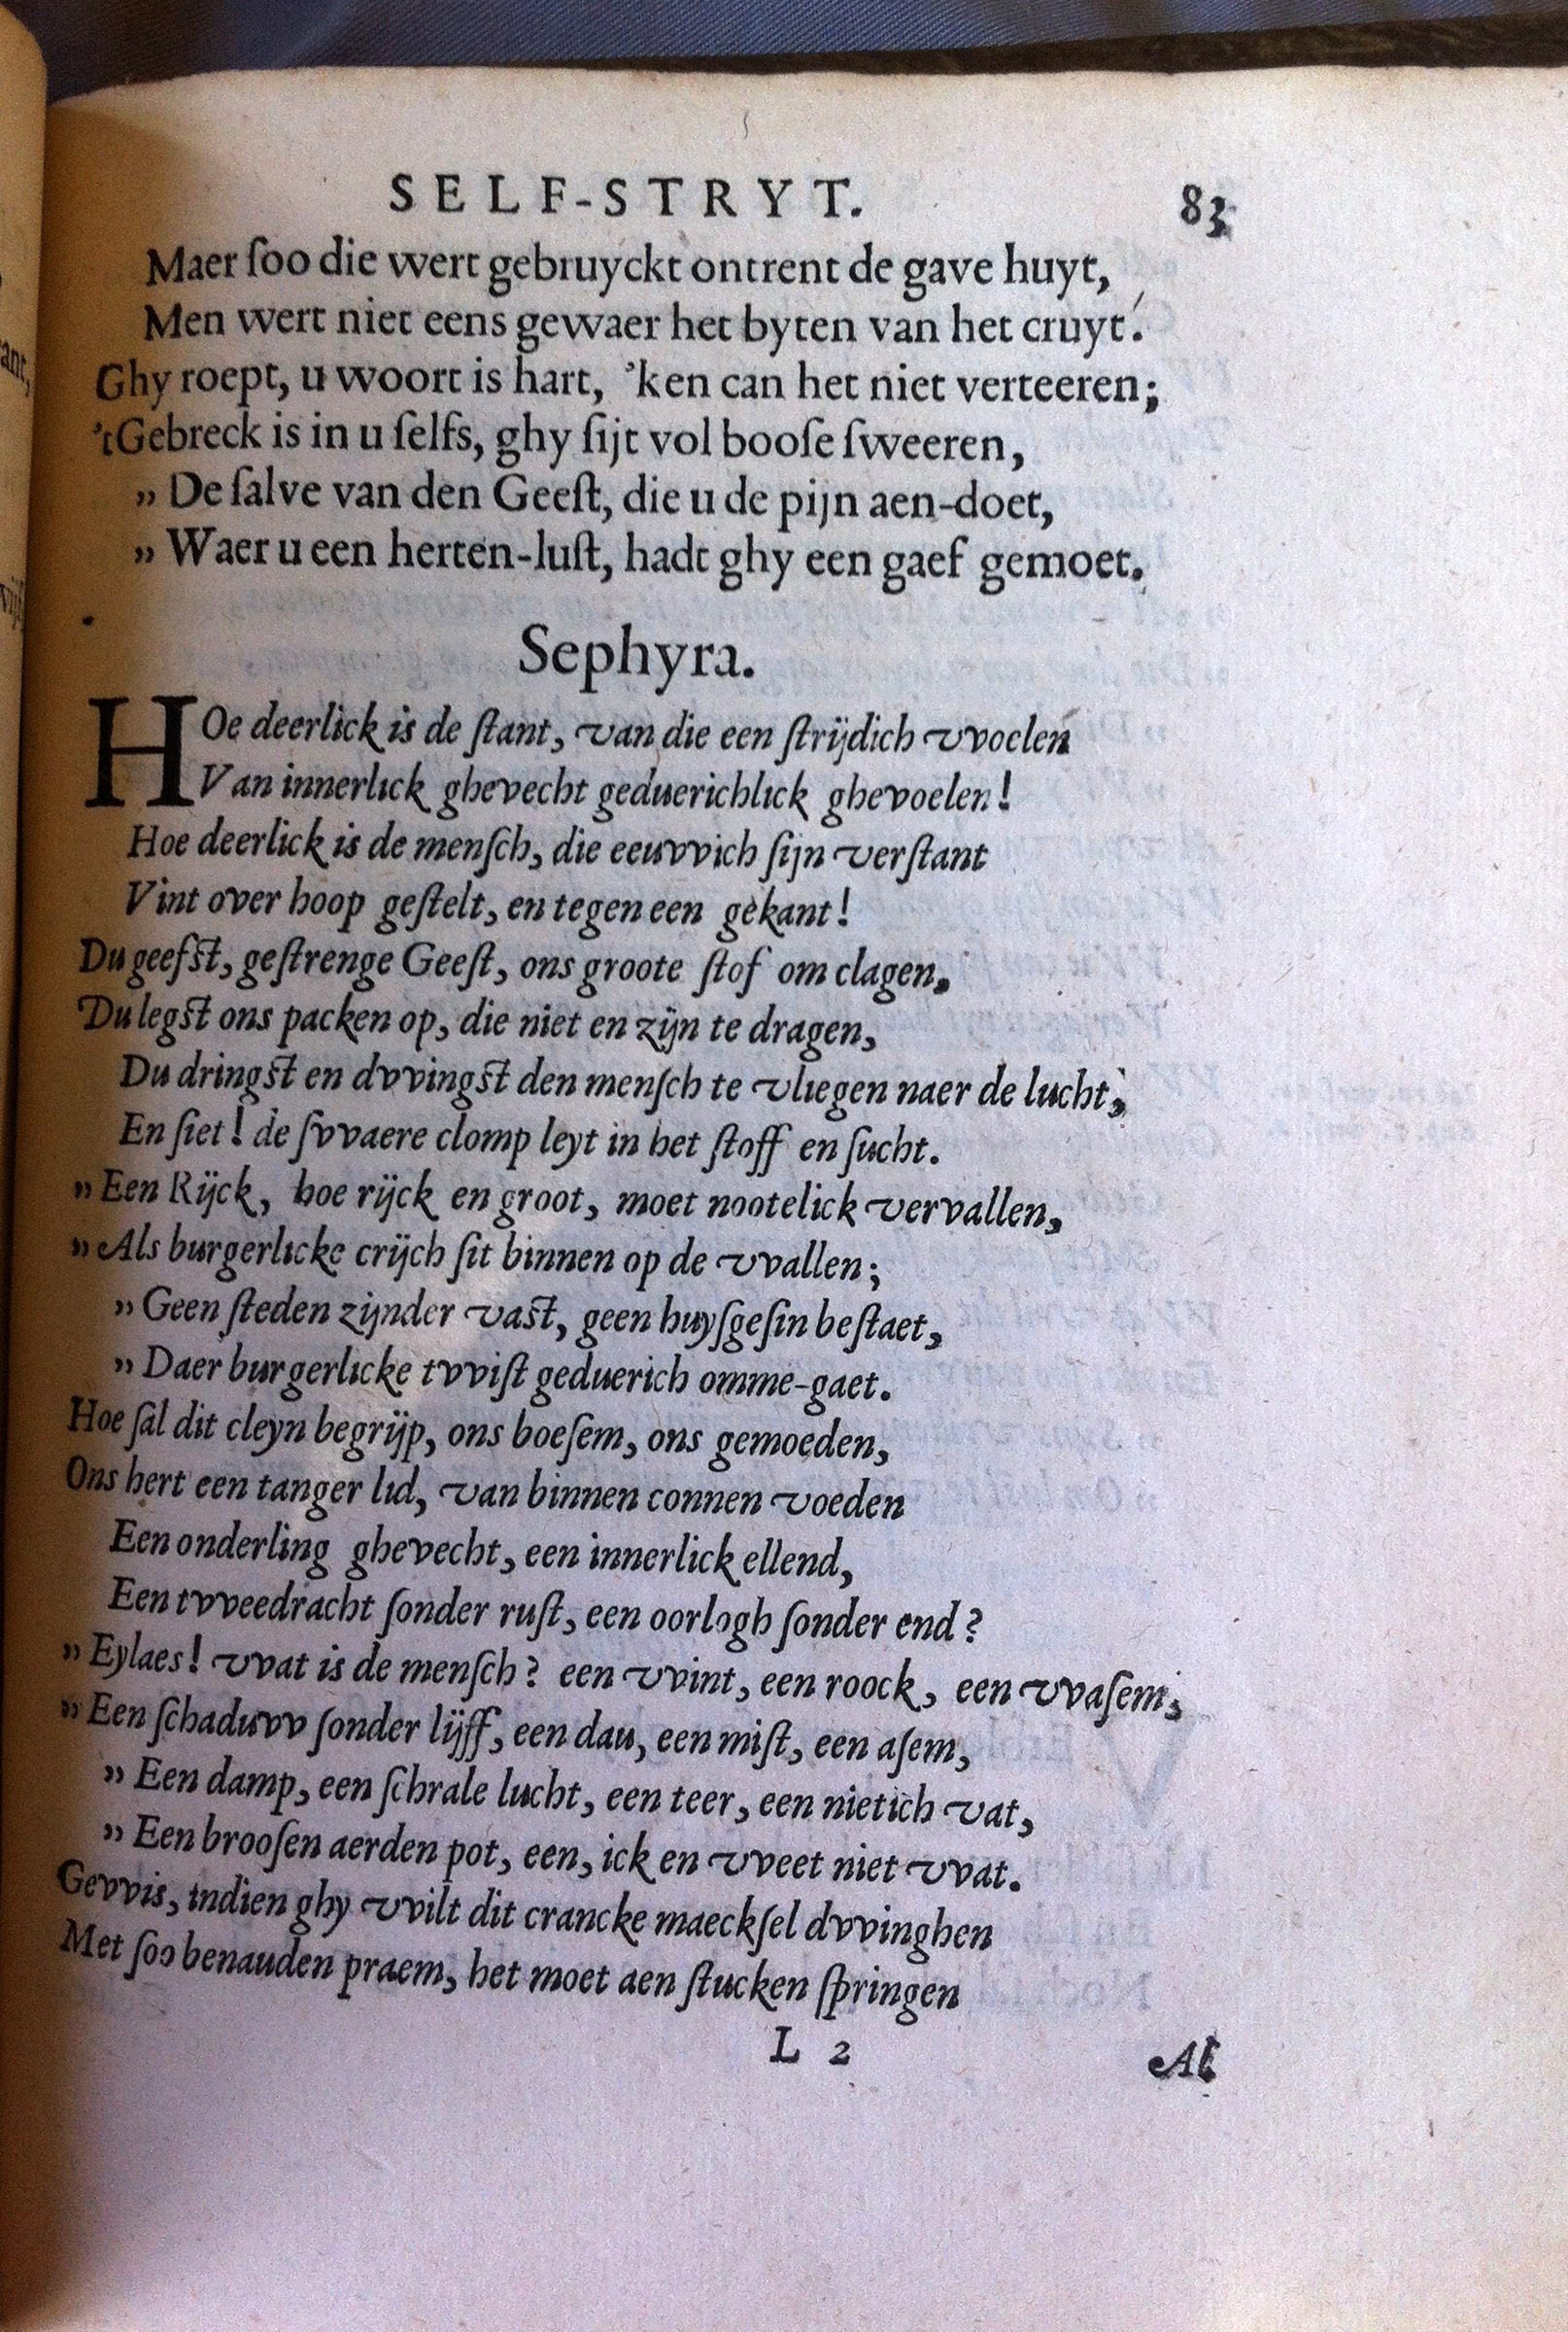 SELF-STRYT. 83
Maer ſoo die wert gebruyckt ontrent de gave huyt,
Men wert niet eens gewaer het byten van het cruyt.
Ghy roept, u woort is hart, 'ken can het niet verteeren;
'tGebreck is in u ſelfs, ghy ſijt vol booſe ſweeren,
„ De ſalve van den Geeſt, die u de pijn aen-doet,
„ Waer u een herten-luſt, hadt ghy een gaef gemoet.
Sephyra.
HOe deerlick is de ſtant, van die een ſtrijdich vvoelen
Van innerlick ghevecht geduerichlick ghevoelen!
Hoe deerlick is de menſch, die eeuvvich ſijn verſtant
Vint over hoop geſtelt, en tegen een gekant!
Du geefst, geſtrenge Geeſt, ons groote ſtof om clagen,
Du legst ons packen op, die niet en zijn te dragen,
Du dringst en dvvingst den menſch te vliegen naer de lucht,
En ſiet! de ſvvaere clomp leyt in het ſtoff en ſucht.
„ Een Rijck, hoe rijck en groot, moet nootelick vervallen,
„ Als burgerlicke crijch ſit binnen op de vvallen;
„ Geen ſteden zijnder vast, geen huyſgeſin beſtaet,
„ Daer burgerlicke tvviſt geduerich omme-gaet.
Hoe ſal dit cleyn begrijp, ons boeſem, ons gemoeden,
Ons hert een tanger lid, van binnen connen voeden
Een onderling ghevecht, een innerlick ellend,
Een tvveedracht ſonder ruſt, een oorlogh ſonder end?
„ Eylaes! vvat is de menſch? een vvint, een roock, een vvaſem,
„ Een ſchaduvv ſonder lijff, een dau, een miſt, een aſem,
„ Een damp, een ſchrale lucht, een teer, een nietich vat,
„ Een brooſen aerden pot, een, ick en vveet niet vvat.
Gevvis, indien ghy vvilt dit crancke maeckſel dvvinghen
Met ſoo benauden praem, het moet aen ſtucken ſpringen
L 2 Al